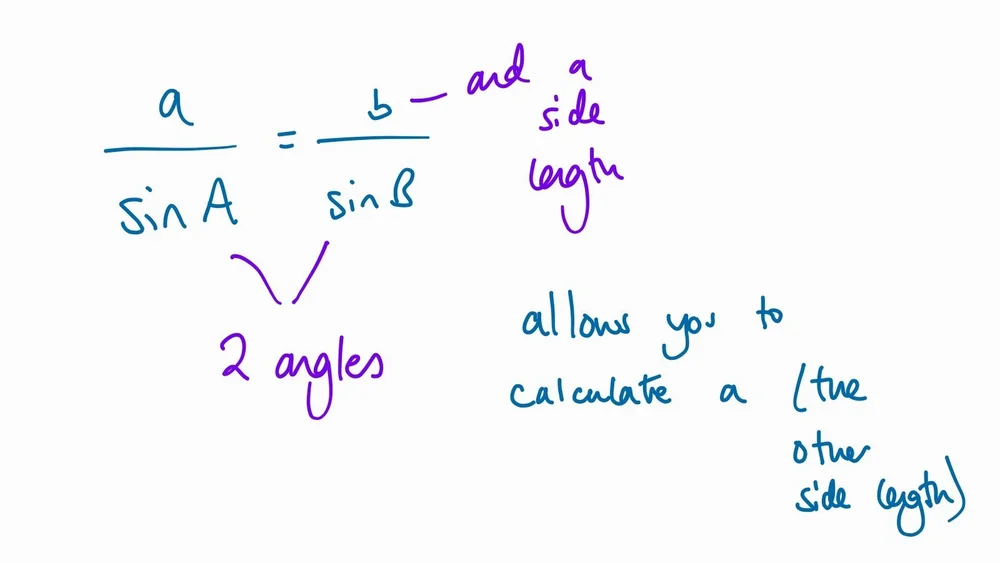 a = b — and a
sin A sin B side
length
2 angles
allows you to
calculate a (the
other
side length)